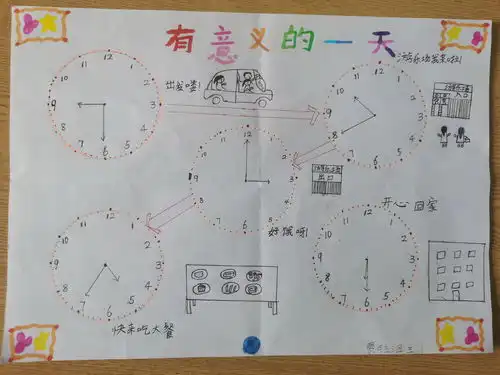 有意义的一天
出发喽!
游乐场我来啦!
游乐场
入口
12
1
2
3
4
5
6
7
8
9
10
11
12
1
2
3
4
5
6
7
8
9
10
11
12
1
2
3
4
5
6
7
8
9
10
11
游乐场
出口
好饿呀!
开心回家
12
1
2
3
4
5
6
7
8
9
10
11
12
1
2
3
4
5
6
7
8
9
10
11
快来吃大餐